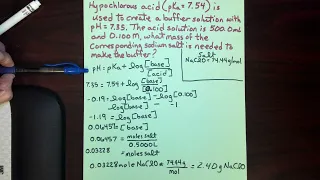 Hypochlorous acid (pKa = 7.54) is
used to create a buffer solution with
pH = 7.35. The acid solution is 500.0mL
and 0.100M, what mass of the
corresponding sodium salt is needed to
make the buffer?
Salt
NaClO = 74.44g/mol
pH = pKa + log [base]
[acid]
7.35 = 7.54 + log [base]
[0.100]
-0.19 = log[base] - log[0.100]
-1 -1
-1.19 = log[base]
0.06457 = [base]
0.06457 = moles salt
0.5000L
0.03228 = moles salt
0.03228 mole NaClO x 74.44g = 2.40g NaClO
mol